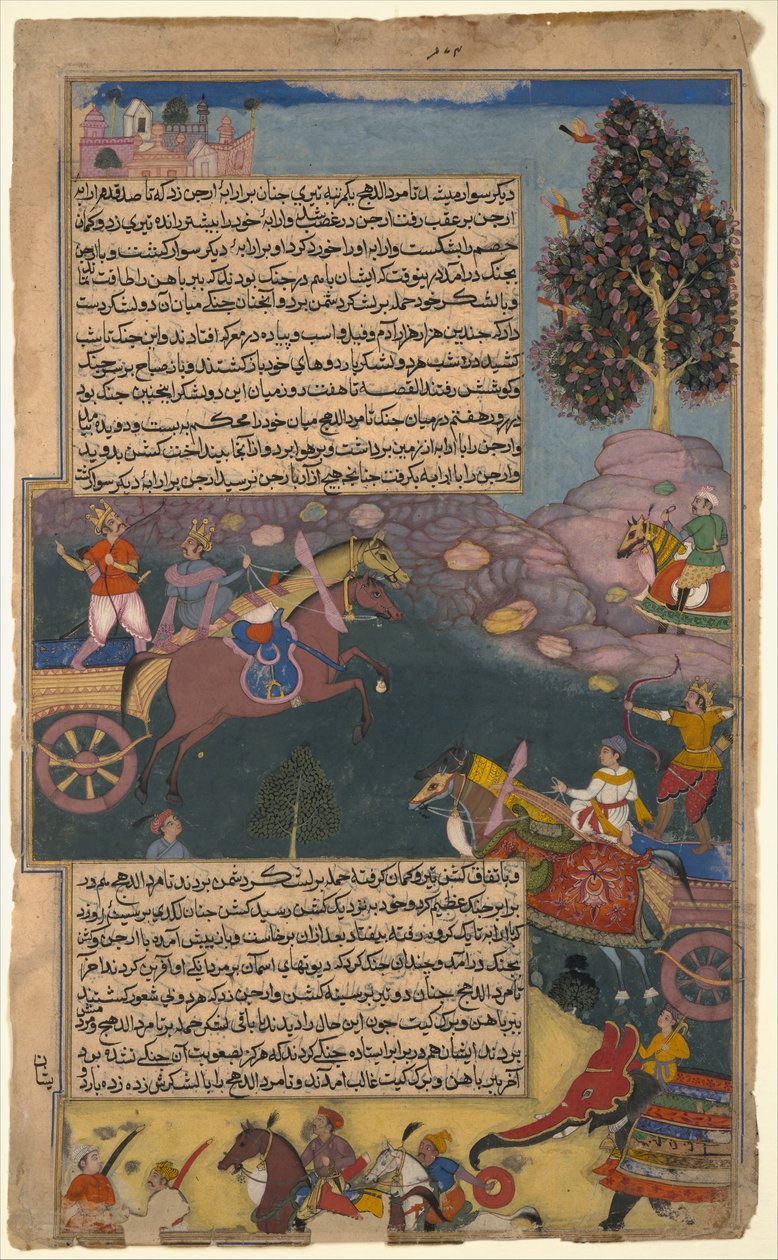 ۳۷۴
دیکر سوار میشد تامردالدهج یکمرتبه تیری چنان بر ارابهٔ ارجن زد که تا صد قدم ارابهٔ
ارجن بر عقب رفت ارجن در غضب شد و ارابهٔ خود را پیشتر رانده تیری زد و کمان
خصم را شکست و ارابه او را خورد کرد او بر ارابهٔ دیکر سوار کشت و با ارجن
بجنک درآمد درینوقت که ایشان باهم در جنک بودند که ببرباهن را طاقت نماند
و با لشکر خود حمله بر لشکر دشمن برد و آنچنان جنکی میان آن دو لشکر دست
داد که چندین هزار هزار آدم و فیل و اسب و پیاده در معرکه افتادند و این جنک تا شب
کشید در شب هر دو لشکر باردوهای خود باز کشتند و باز صباح بر سر جنک
و کوشش رفتند القصه تا هفت روز میان این دو لشکر اینچنین جنک بود
در روز هفتم در میان جنک تامردالدهج میان خود را محکم به بست و دویده بیامد
و ارجن را با ارابه از زمین برداشت و بر هوا برد و از آنجا بینداخت کشن بدوید
و ارجن را با ارابه بکرفت چنانچه هیچ آزار بارجن نرسید ارجن بر ارابهٔ دیکر سوار کشت
و باتفاق کشن تیر و کمان کرفته حمله بر لشکر دشمن بردند تامردالدهج هم در
برابر جنک عظیم کرد و خود بر نزدیک کشن رسید کشن چنان لکدی بر سینهٔ او زد
که او تا یک کروه رفته بیفتاد بعد ازان برخاست و باز پیش آمده با ارجن و کشن
بجنک درآمد و چندان جنک کرد که دیوتهای آسمان بر مردانکی او آفرین کردند آخر
تامردالدهج چنان دو تیر بر سینهٔ کشن و ارجن زد که هر دو بی شعور کشتند
ببرباهن و برک کیت چون این حال را دیدند با باقی لشکر حمله بر تامردالدهج و مردمش
بردند ایشان هم در برابر ایستاده جنکی کردند که هرکز بصعوبت آن جنکی نشده بود
آخر ببرباهن و برک کیت غالب آمدند و تامردالدهج را با لشکرش زده زده باردو